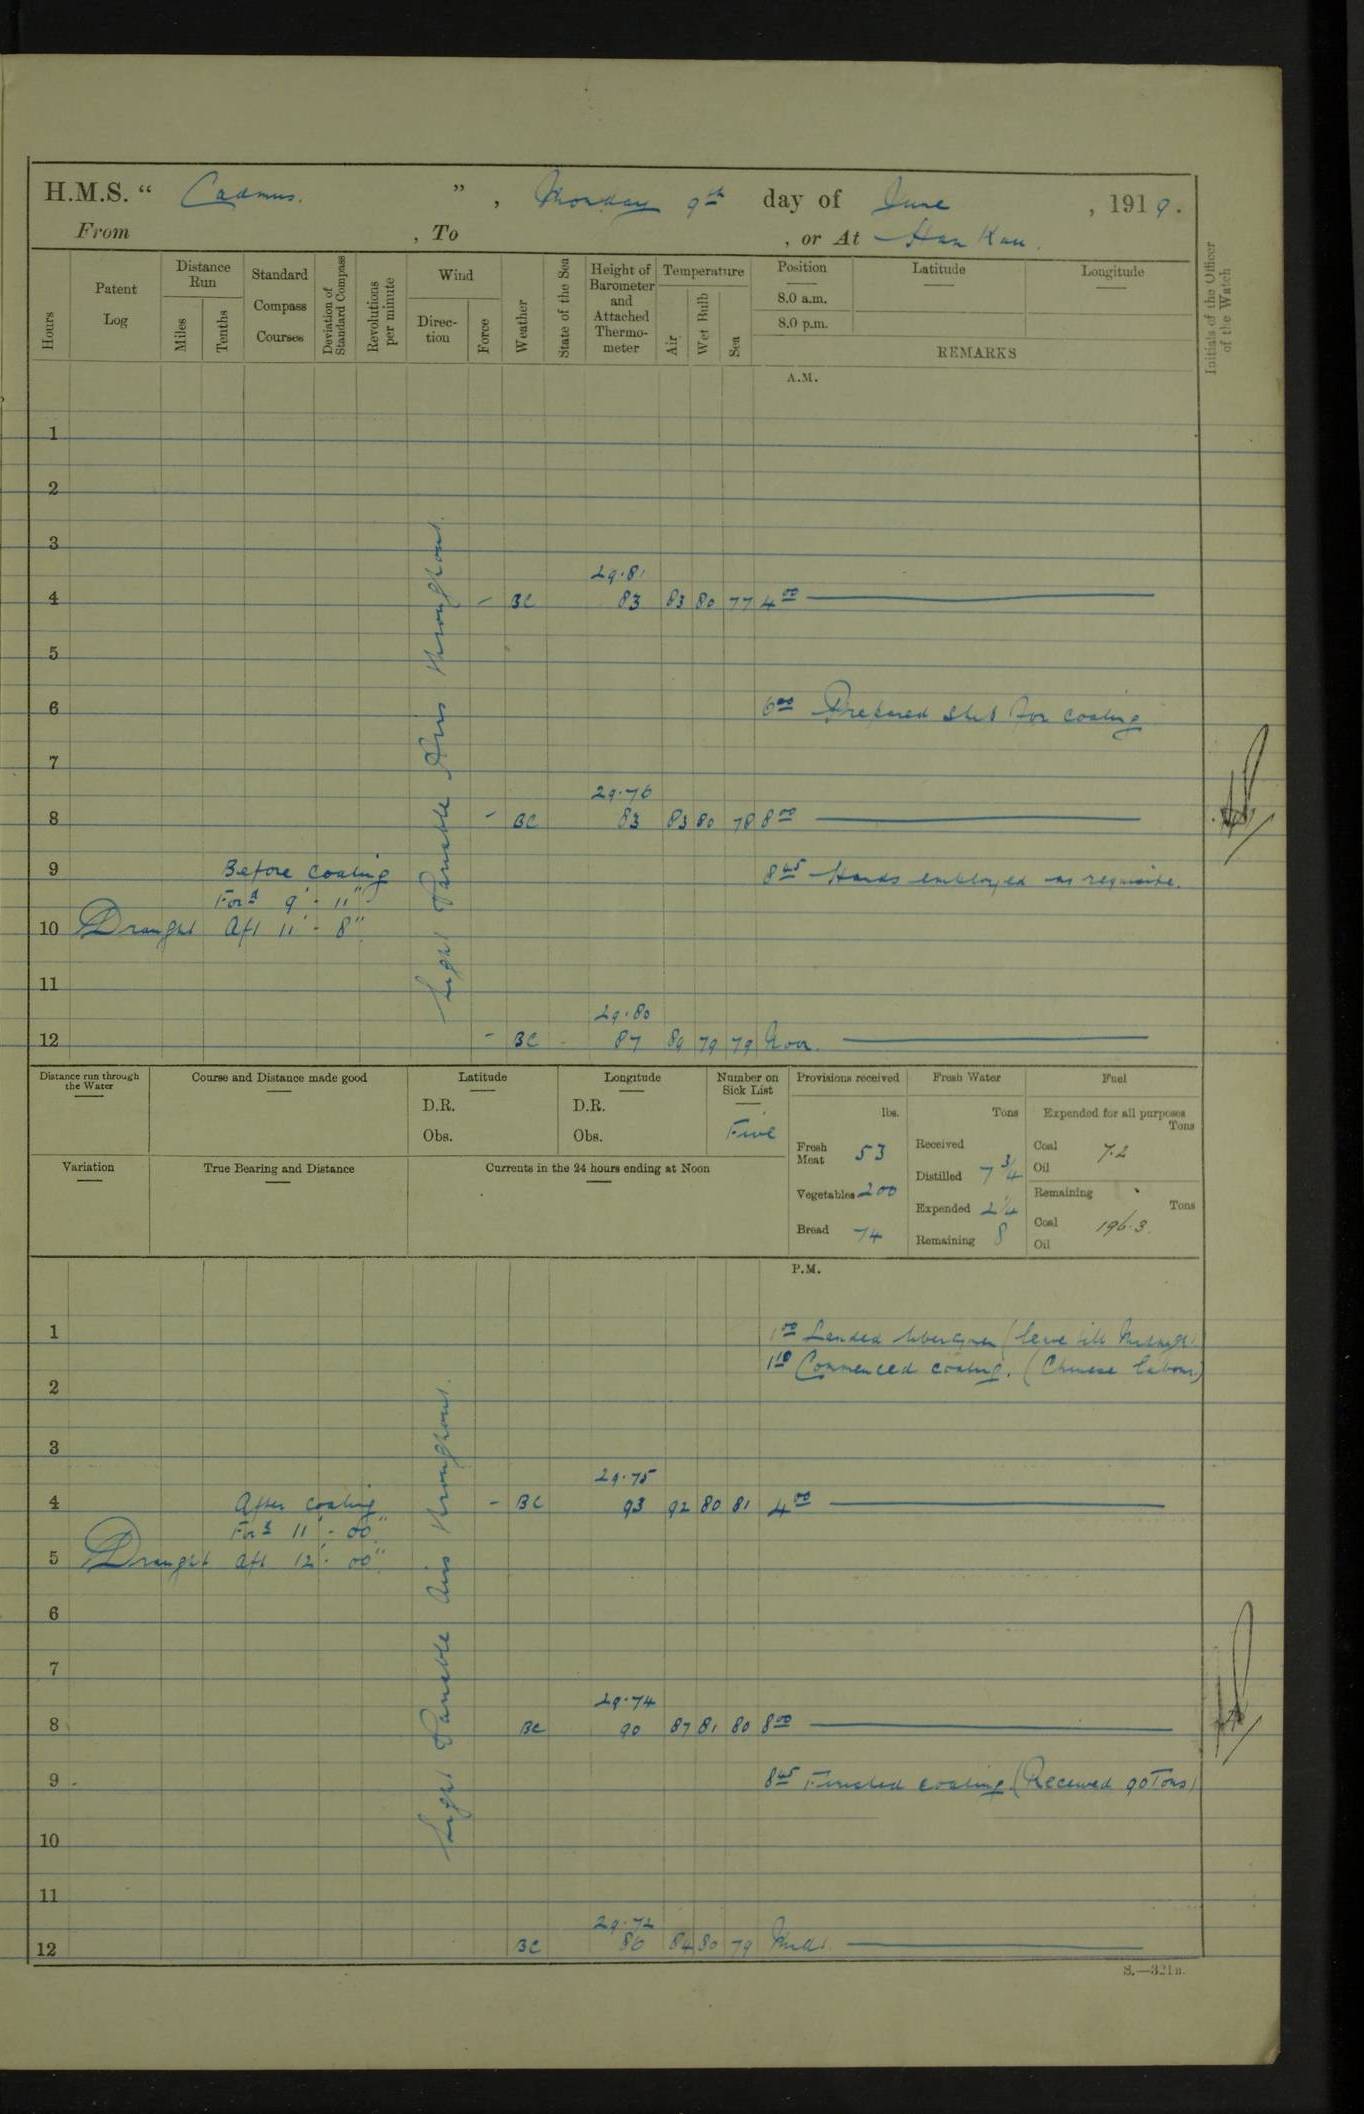 H.M.S. “ Cadmus. ”, Monday 9th day of June, 1919.
From , To , or At Han Kau.
Hours
Patent Log
Distance Run
Miles
Tenths
Standard Compass Courses
Deviation of Standard Compass
Revolutions per minute
Wind
Direction
Force
Weather
State of the Sea
Height of Barometer and Attached Thermometer
Temperature
Air
Wet Bulb
Sea
Position
8.0 a.m.
8.0 p.m.
Latitude
Longitude
REMARKS
Initials of the Officer of the Watch
A.M.
Light Variable Airs throughout.
1
2
3
29.81
4 - BC 83 83 80 77 4 00
5
6 6 00 Prepared ship for coaling
7
29.76
8 - BC 83 83 80 78 8 00
9 Before coaling 8 45 Hands employed as requisite.
For'd 9' - 11"
10 Draught Aft 11' - 8"
11
29.80
12 - BC - 87 89 79 79 Noon.
Distance run through the Water
Course and Distance made good
Latitude
D.R.
Obs.
Longitude
D.R.
Obs.
Number on Sick List
Five
Provisions received
lbs.
Fresh Meat 53
Vegetables 200
Bread 74
Fresh Water
Tons
Received
Distilled 7 3/4
Expended 2 1/4
Remaining 8
Fuel
Expended for all purposes
Tons
Coal 7.2
Oil
Remaining
Tons
Coal 196.3.
Oil
Variation
True Bearing and Distance
Currents in the 24 hours ending at Noon
P.M.
Light Variable Airs throughout.
1 1 00 Landed liberty men (leave till Midnight
1 10 Commenced coaling. (Chinese labour)
2
3
29.75
4 After coaling - BC 93 92 80 81 4 00
For'd 11' - 00"
5 Draught Aft 12' - 00"
6
7
29.74
8 BC 90 87 81 80 8 00
9 8 45 Finished coaling (Received 90 Tons)
10
11
29.72
12 BC 86 84 80 79 Midt.
S.—321B.